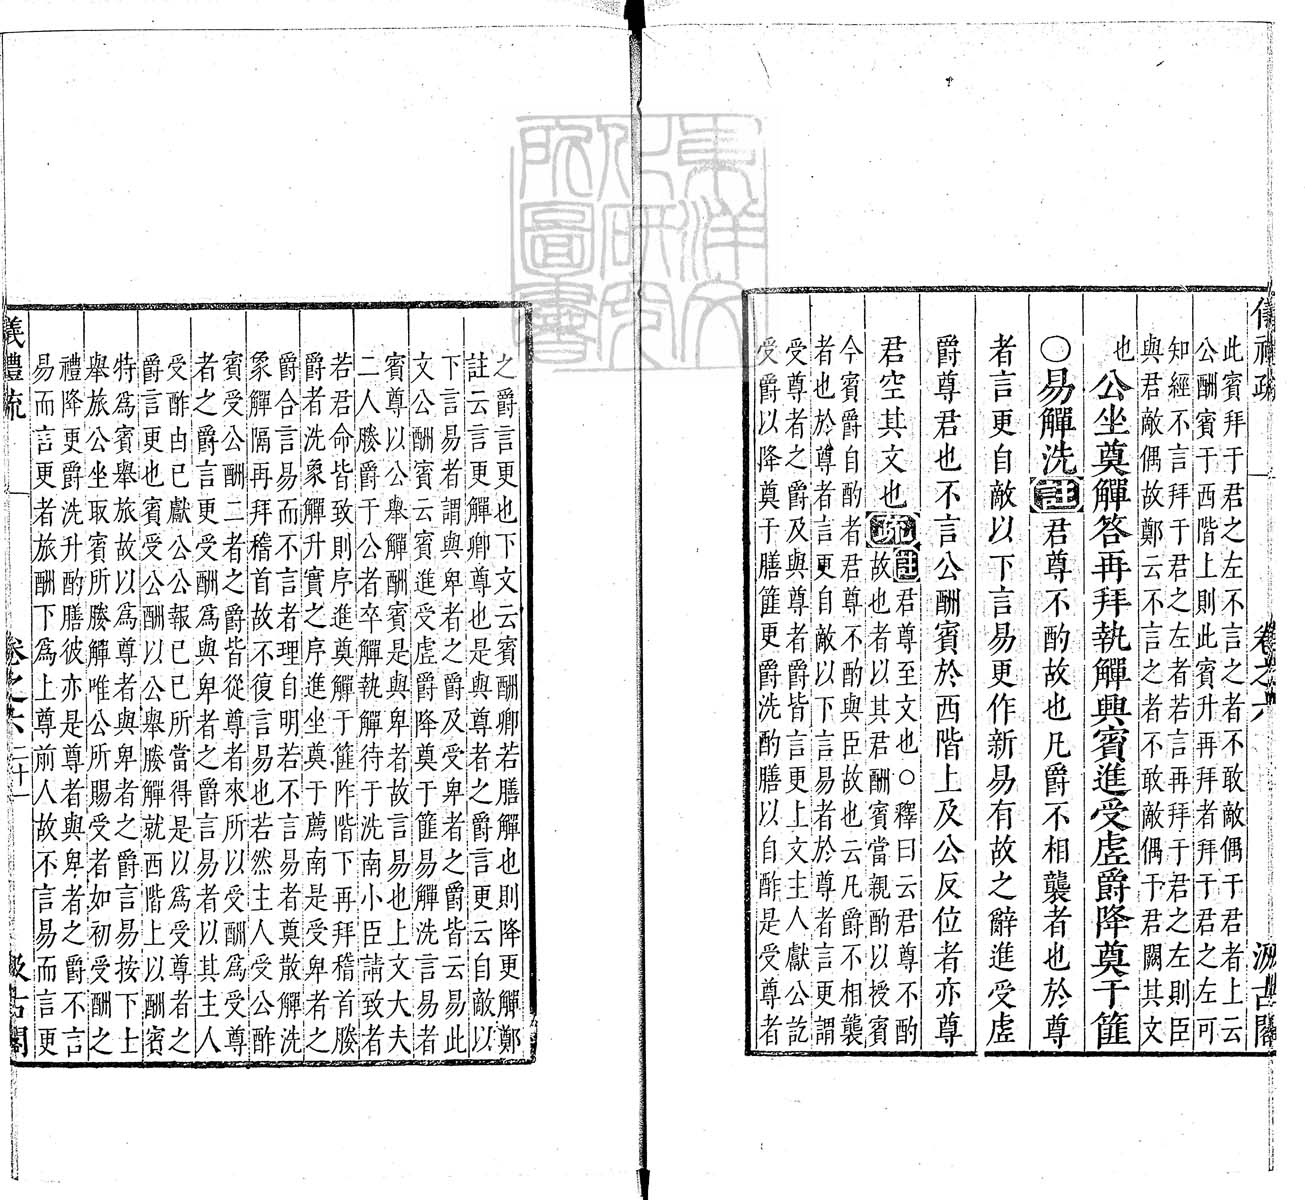 儀禮疏　卷之六　汲古閣
此賓拜于君之左不言之者不敢敵偶于君者上云
公酬賓于西階上則此賓升再拜者拜于君之左可
知經不言拜于君之左者若言再拜于君之左則臣
與君敵偶故鄭云不言之者不敢敵偶于君闕其文
也
公坐奠觶答再拜執觶興賓進受虛爵降奠于篚
○易觶洗註君尊不酌故也凡爵不相襲者也於尊
者言更自敵以下言易更作新易有故之辭進受虛
爵尊君也不言公酬賓於西階上及公反位者亦尊
君空其文也疏註君尊至文也○釋曰云君尊不酌
故也者以其君酬賓當親酌以授賓
今賓爵自酌者君尊不酌與臣故也云凡爵不相襲
者也於尊者言更自敵以下言易者於尊者言更謂
受尊者之爵及與尊者爵皆言更上文主人獻公訖
受爵以降奠于膳篚更爵洗酌膳以自酢是受尊者
之爵言更也下文云賓酬卿若膳觶也則降更觶鄭
註云言更觶卿尊也是與尊者之爵言更云自敵以
下言易者謂與卑者之爵及受卑者之爵皆云易此
文公酬賓云賓進受虛爵降奠于篚易觶洗言易者
賓尊以公舉觶酬賓是與卑者故言易也上文大夫
二人媵爵于公者卒觶執觶待于洗南小臣請致者
若君命皆致則序進奠觶于篚阼階下再拜稽首媵
爵者洗象觶升實之序進坐奠于薦南是受卑者之
爵合言易而不言者理自明若不言易者奠散觶洗
象觶隔再拜稽首故不復言易也若然主人受公酢
賓受公酬二者之爵皆從尊者來所以受酬爲受尊
者之爵言更受酬爲與卑者之爵言易者以其主人
受酢由已獻公公報已已所當得是以爲受尊者之
爵言更也賓受公酬以公舉媵觶就西階上以酬賓
特爲賓舉旅故以爲尊者與卑者之爵言易按下士
舉旅公坐取賓所媵觶唯公所賜受者如初受酬之
禮降更爵洗升酌膳彼亦是尊者與卑者之爵不言
易而言更者旅酬下爲上尊前人故不言易而言更
儀禮疏　卷之六　二十一　汲古閣
東洋文化研究所圖書